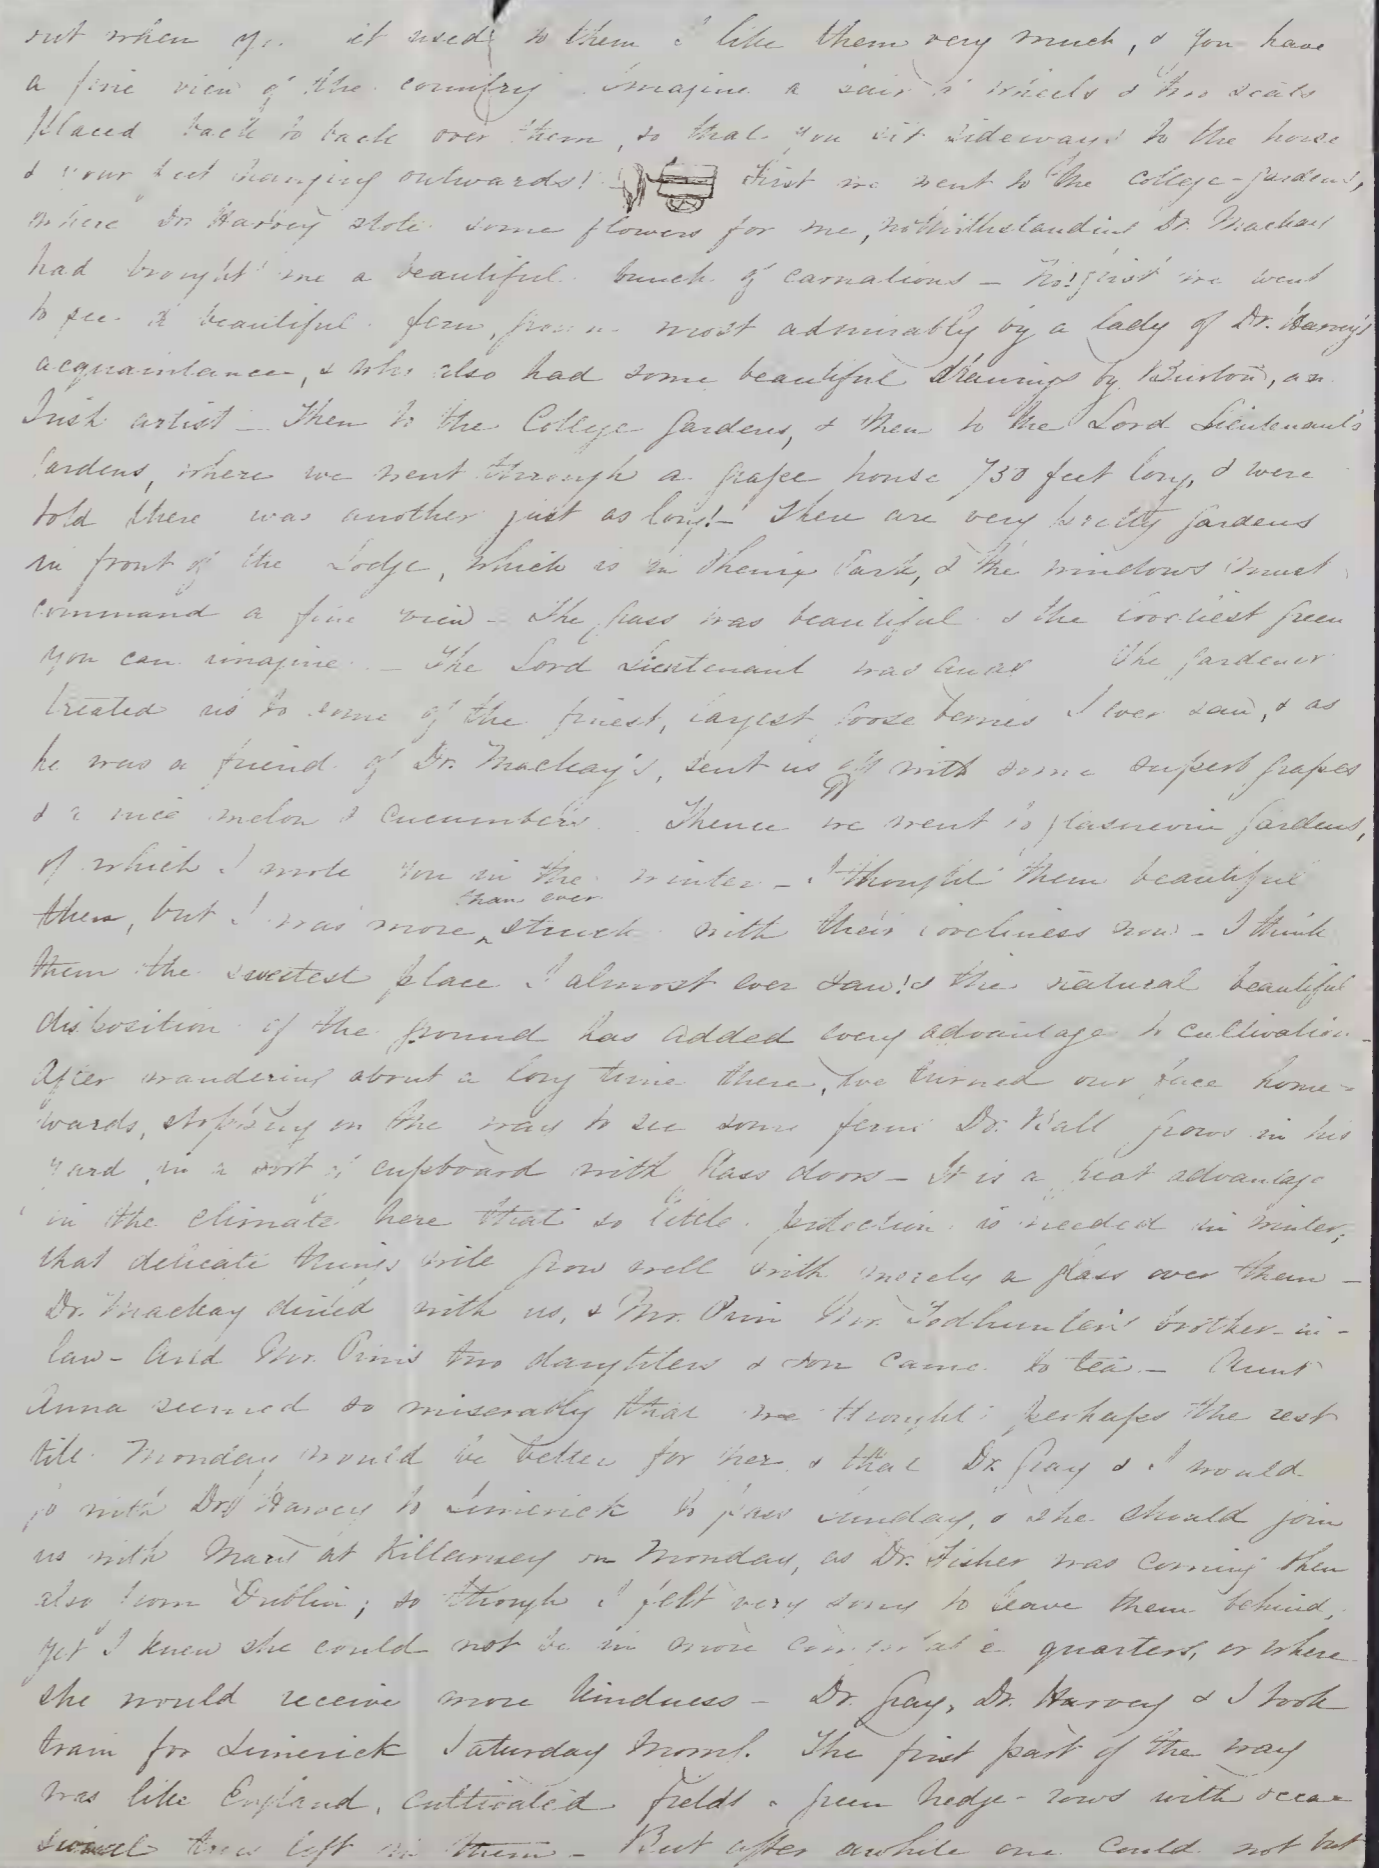 but when you get used to them I like them very much, & you have
a fine view of the country. Imagine a pair of wheels & two seats
placed back to back over them, so that you sit sideways to the horse
& your feet hanging outwards! First we went to the College-gardens,
where Dr. Harvey stole some flowers for me, notwithstanding Dr. Mackay
had brought me a beautiful bunch of carnations – No! first we went
to see a beautiful fern, grown most admirably by a lady of Dr. Harvey's
acquaintance, & who also had some beautiful drawings by Burton, an
Irish artist – Then to the College Gardens, & then to the Lord Lieutenant's
Gardens, where we went through a grape house 750 feet long, & were
told there was another just as long! – There are very pretty gardens
in front of the Lodge, which is in Phenix Park, & the windows must
command a fine view – The grass was beautiful & the loveliest green
you can imagine – The Lord Lieutenant was away The gardener
treated us to some of the finest, largest gooseberries I ever saw, & as
he was a friend of Dr. Mackay's, sent us off with some superb grapes
& a nice melon & cucumbers. Thence we went to Glasnevin Gardens,
of which I wrote you in the winter – I thought them beautiful
then, but I was more than ever struck with their loveliness now – I think
them the sweetest place I almost ever saw! & the natural beautiful
disposition of the ground has added every advantage to cultivation –
After wandering about a long time there, we turned our face home-
wards, stopping on the way to see some ferns Dr. Ball grows in his
yard, in a sort of cupboard with glass doors – It is a great advantage
in the climate here that so little protection is needed in winter,
that delicate things will grow well with merely a glass over them –
Dr. Mackay dined with us, & Mr. Pim Mr. Todhunter's brother-in-
law – And Mr. Pim's two daughters & son came to tea – Aunt
Anna seemed so miserably that we thought perhaps the rest
till Monday would be better for her & that Dr. Gray & I would
go with Dr. Harvey to Limerick to pass Sunday, & she should join
us with Mary at Killarney on Monday, as Dr. Fisher was coming then
also from Dublin; so though I felt very sorry to leave them behind,
yet I knew she could not be in more comfortable quarters, or where
she would receive more kindness – Dr. Gray, Dr. Harvey & I took
train for Limerick Saturday Morng. The first part of the way
was like England, cultivated fields & green hedge-rows with occa-
sional trees left in them – But after awhile one could not but